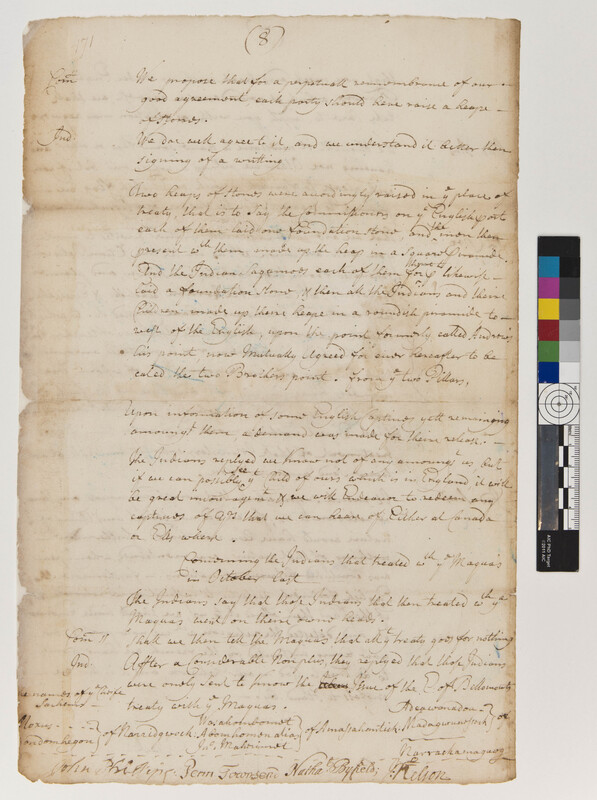 171
(8)
Com
We propose that for a perpetuall remembrance of our
good agreement each party should here raise a heape
of stones.
Ind
We doe well agree to it, and we understand it better then
signing of a writting
Two heaps of stones were accordingly raised in ye place of
treaty, that is to say the Commissioners on ye English part
each of them laid one foundation stone, and the men then
present wth them made up the heap in a Square Piramide.
And the Indian Sagamores each of them for ym likewise
laid a foundation stone & then all the Indians and their
Children made up there heape in a roundish piramide to
west of the English, upon the point formerly called Andrews
his point, now Mutually Agreed for ever hereafter to be
called the two Brothers point. from ye two Pillars,
Upon information of some English Captives yett remaining
amoungst them, a demand was made for there release.
The Indians replyed we know not of any amoungst us but
if we can possibly see ye Child of ours which is in England it will
be great incouragemt & we will Endeavor to redeem any
captives of yrs that we can hear of Either at Canada
or Els where.
Concerning the Indians that treated wth ye Maquas
in October last
The Indians say that those Indians that then treated wth ye
Maquas went on there owne heads.
Comrs
Shall we then tell the Maquas that all ye treaty goes for nothing
Ind
Affter a Considerable Nonplus, they replyed that those Indians
were onely sent to know the true of the E. of Bellomonts
treaty with ye Maquas.
the names of ye
Sachems
Moxus
of Narridgwock
of Amasahontick
of
Narrackamagwog
John Phillips Penn Townsend Nathal Byfield Jn Nelson
AIC PhD Target